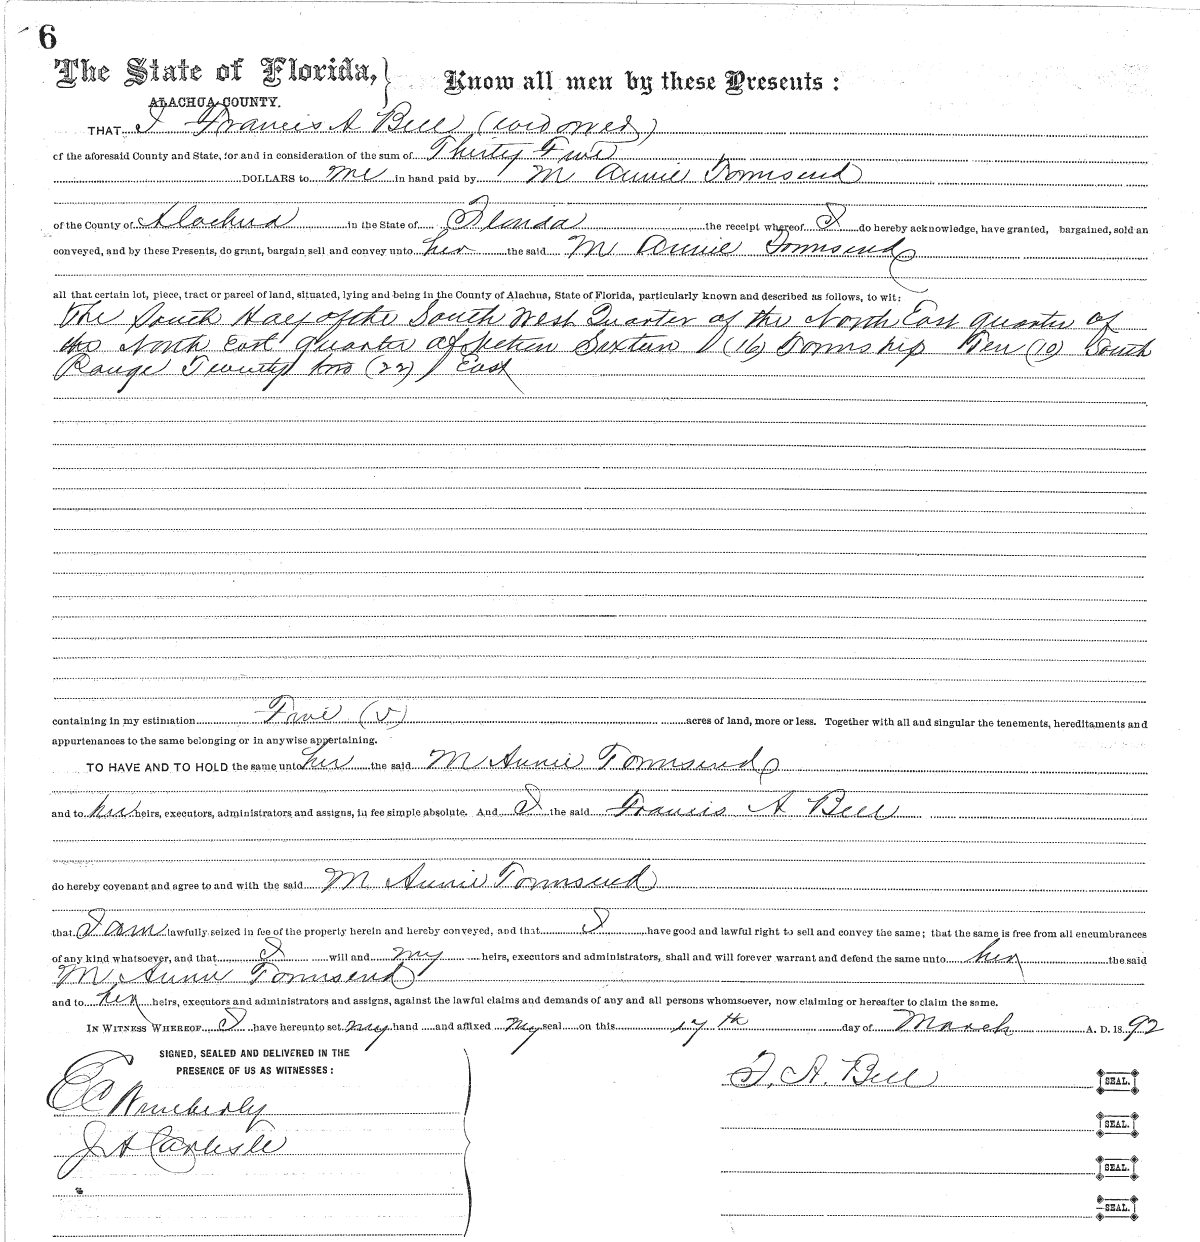 6
The State of Florida,
Know all men by these Presents :
ALACHUA COUNTY.
THAT I Francis A Bell (widowed)
of the aforesaid County and State, for and in consideration of the sum of Thirty Five
DOLLARS to me in hand paid by M Annie Townsend
of the County of Alachua in the State of Florida the receipt whereof I do hereby acknowledge, have granted, bargained, sold an
conveyed, and by these Presents, do grant, bargain sell and convey unto her the said M Annie Townsend
all that certain lot, piece, tract or parcel of land, situated, lying and being in the County of Alachua, State of Florida, particularly known and described as follows, to wit:
The South Half of the South West Quarter of the North East quarter of
the North East quarter of Section Sixteen (16) Township Ten (10) South
Range Twenty two (22) East
containing in my estimation Five (5) acres of land, more or less. Together with all and singular the tenements, hereditaments and
appurtenances to the same belonging or in anywise appertaining.
TO HAVE AND TO HOLD the same unto her the said M Annie Townsend
and to her heirs, executors, administrators and assigns, in fee simple absolute. And I the said Francis A Bell
do hereby covenant and agree to and with the said M Annie Townsend
that I am lawfully seized in fee of the property herein and hereby conveyed, and that I have good and lawful right to sell and convey the same; that the same is free from all encumbrances
of any kind whatsoever, and that I will and my heirs, executors and administrators, shall and will forever warrant and defend the same unto her the said
M Annie Townsend
and to her heirs, executors and administrators and assigns, against the lawful claims and demands of any and all persons whomsoever, now claiming or hereafter to claim the same.
IN WITNESS WHEREOF I have hereunto set my hand and affixed my seal on this 17th day of March A. D. 1892
SIGNED, SEALED AND DELIVERED IN THE
PRESENCE OF US AS WITNESSES:
F. A. Bell SEAL.
E C Wimberly
SEAL.
J A Carlisle
SEAL.
SEAL.